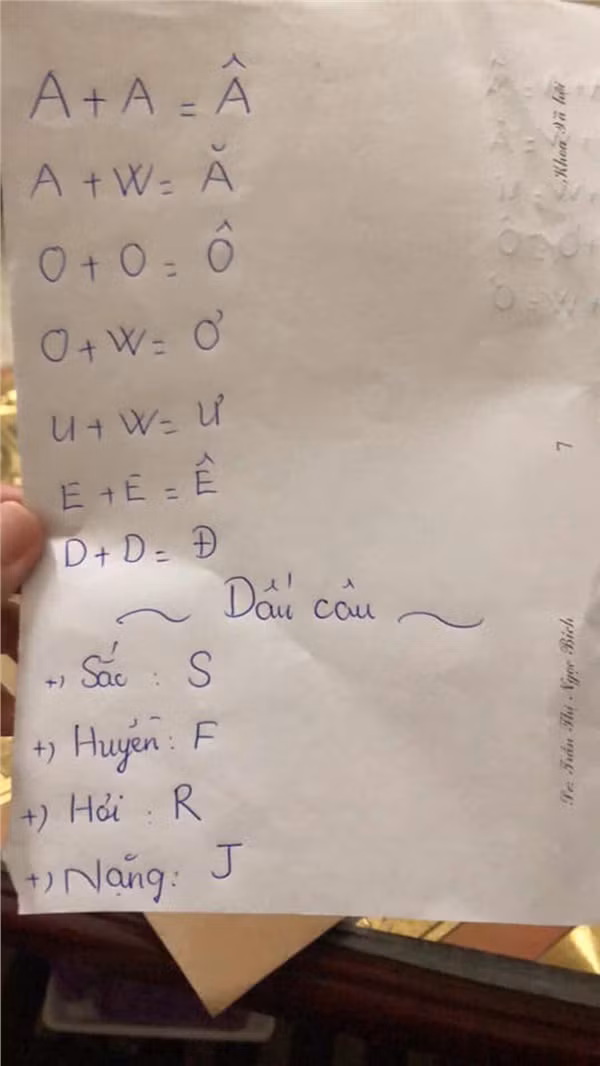 A + A = Â
A + W = Ă
O + O = Ô
O + W = Ơ
U + W = Ư
E + E = Ê
D + D = Đ
~ Dấu câu ~
+) Sắc : S
+) Huyền : F
+) Hỏi : R
+) Nặng : J
Khoa Xã hội
7
Le: Trần Thị Ngọc Bích